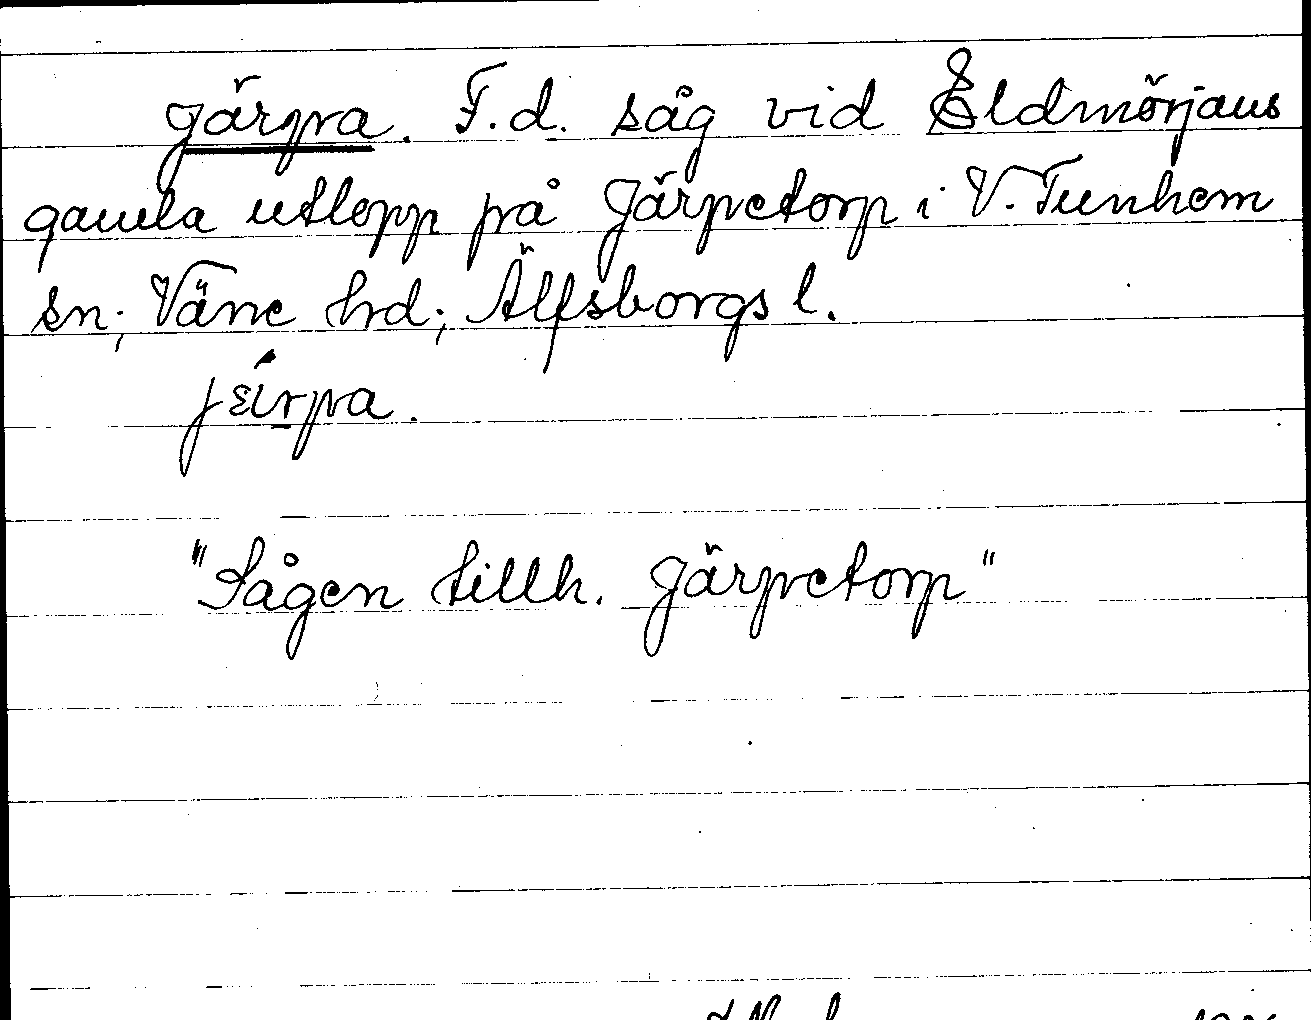 Järpa. F.d. såg vid Eldmörjans
gamla utlopp på Järpetorp i V. Tunhem
sn; Väne hd; Älfsborgs l.
"Sågen tillh. Järpetorp"